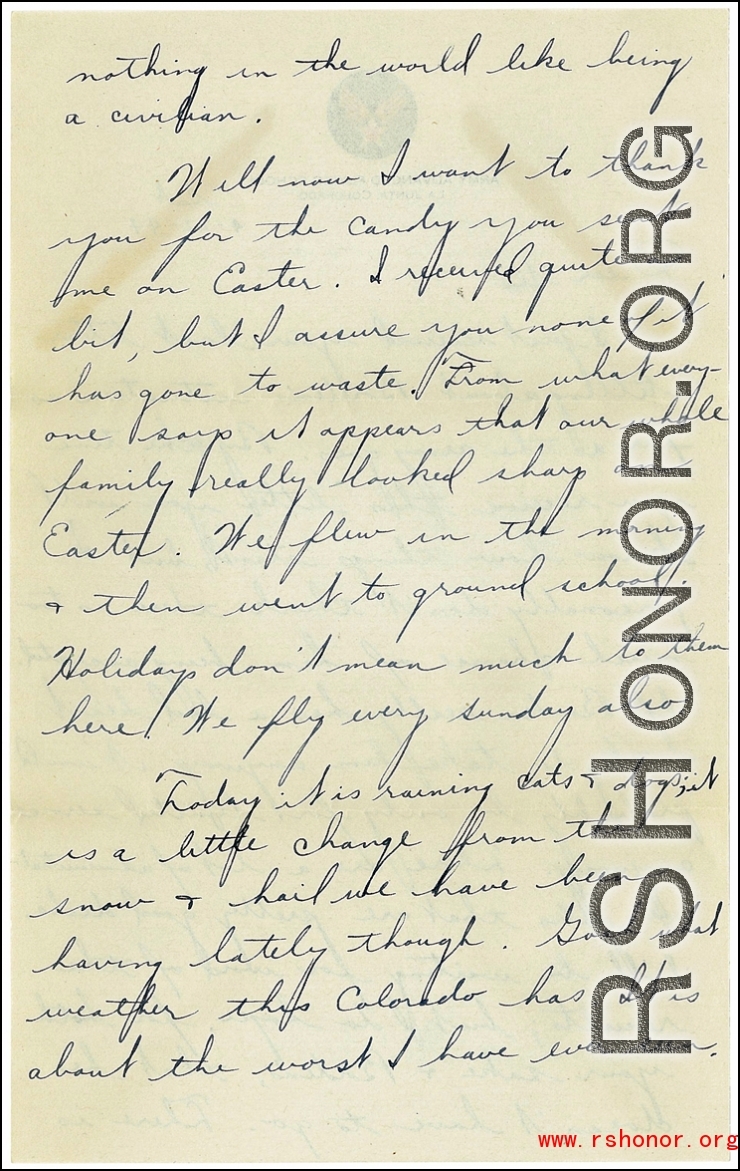 nothing in the world like being
a civilian.
Well now I want to thank
you for the candy you sent
me on Easter. I received quite
bit, but I assure you none of it
has gone to waste. From what every-
one says it appears that our whole
family really looked sharp on
Easter. We flew in the morning
& then went to ground school.
Holidays don't mean much to them
here. We fly every sunday also
Today it is raining cats & dogs; it
is a little change from the
snow & hail we have been
having lately though. Gosh what
weather this Colorado has. It is
about the worst I have ever seen.
RSHONOR.ORG
www.rshonor.org